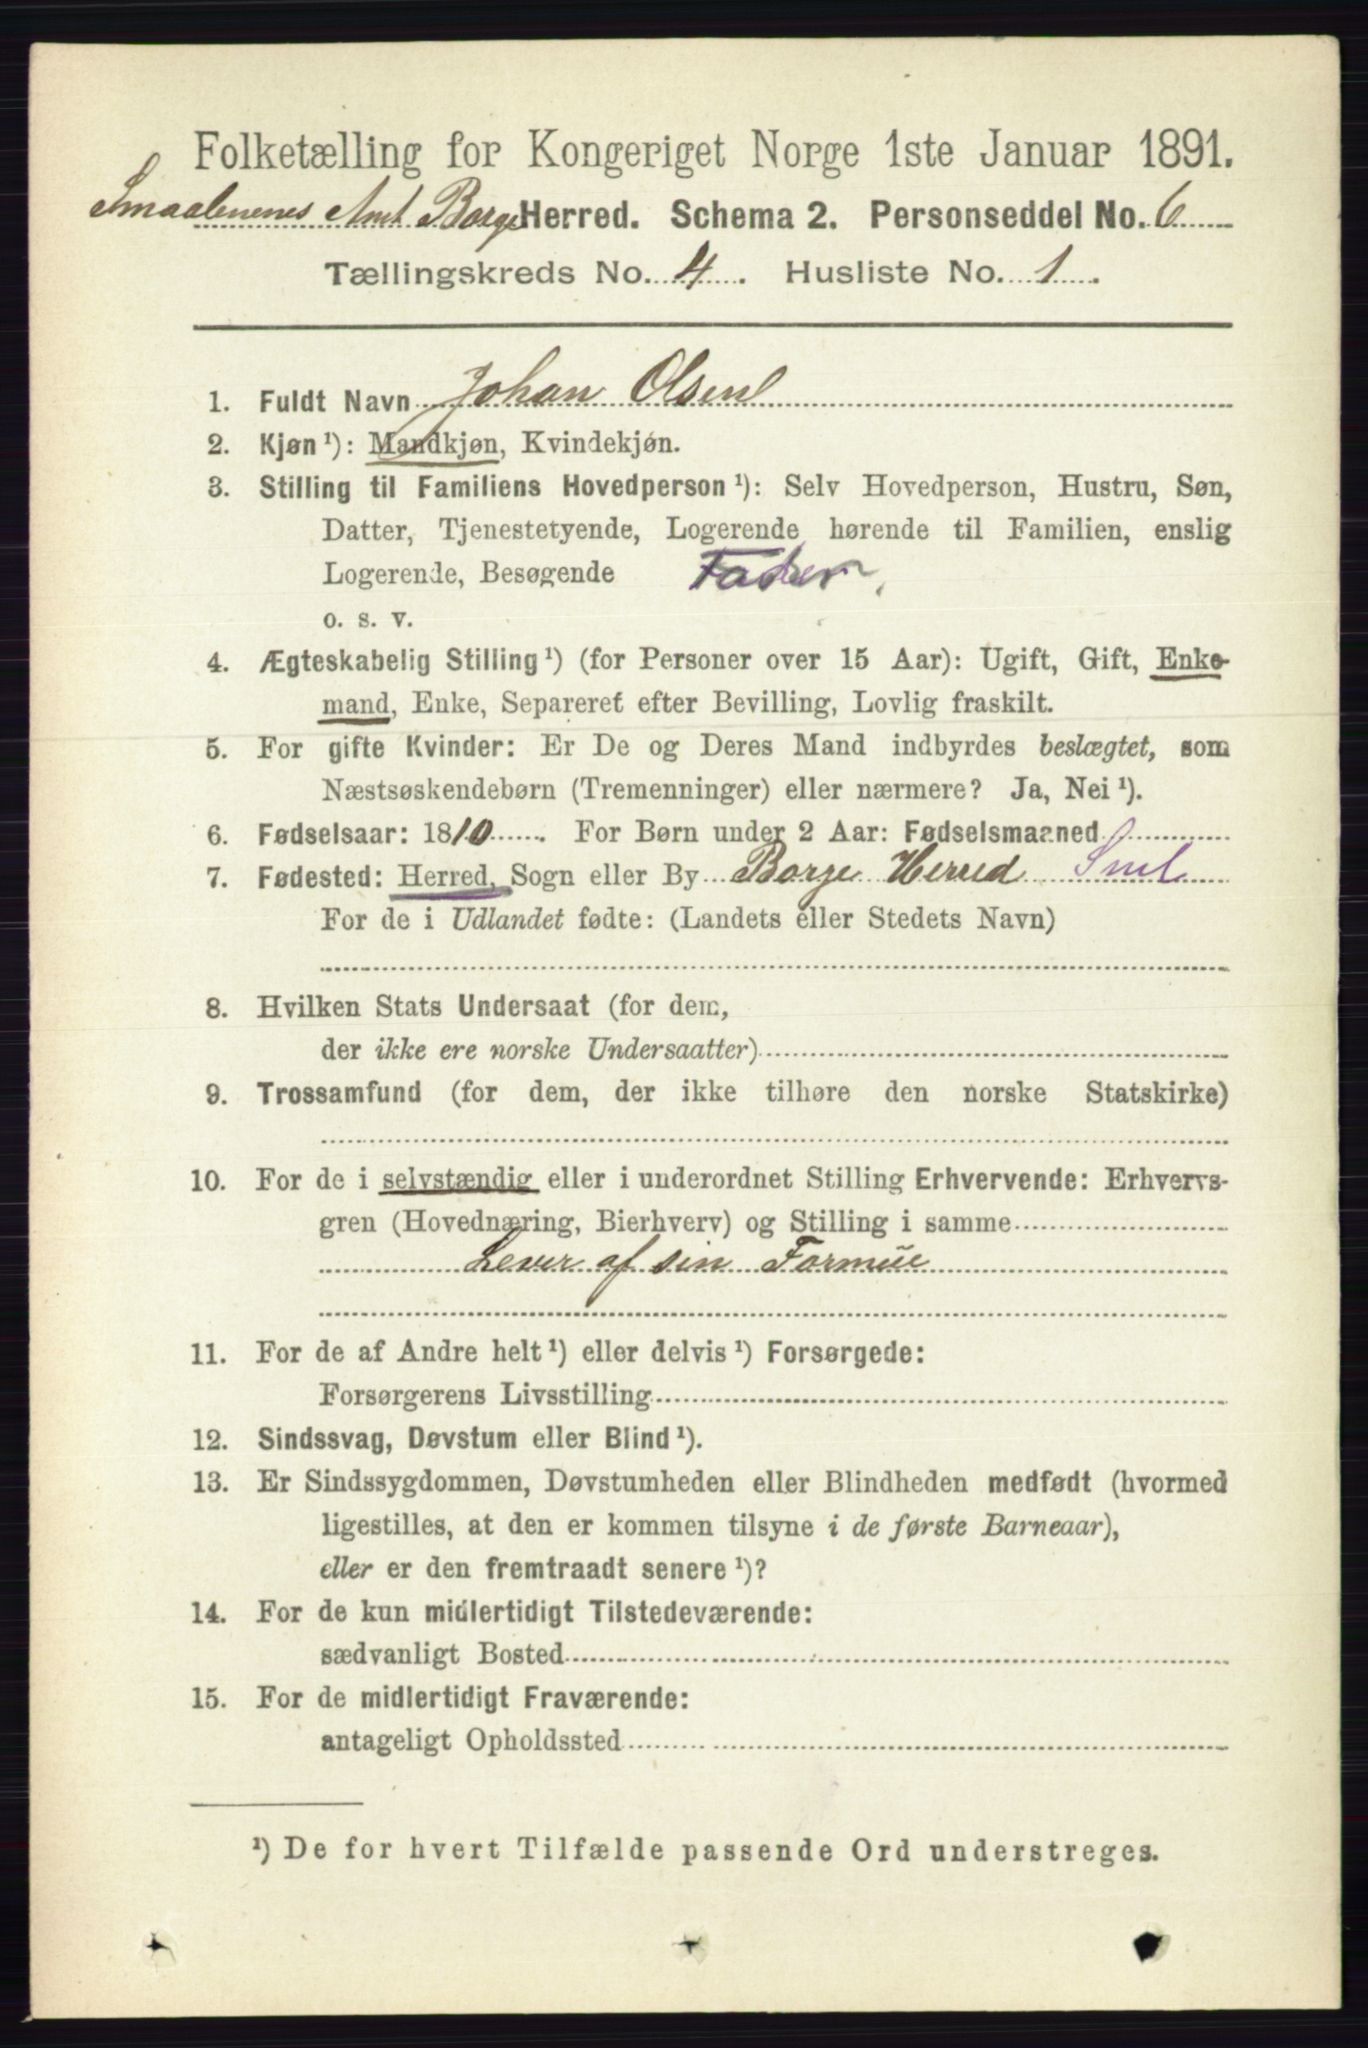 Folketælling for Kongeriget Norge 1ste Januar 1891.
Smaalenenes Amt Borge Herred. Schema 2. Personseddel No. 6
Tællingskreds No. 4. Husliste No. 1.
1. Fuldt Navn Johan Olsen
2. Kjøn ¹): Mandkjøn, Kvindekjøn.
3. Stilling til Familiens Hovedperson ¹): Selv Hovedperson, Hustru, Søn,
Datter, Tjenestetyende, Logerende hørende til Familien, enslig
Logerende, Besøgende Fader.
o. s. v.
4. Ægteskabelig Stilling ¹) (for Personer over 15 Aar): Ugift, Gift, Enke-
mand, Enke, Separeret efter Bevilling, Lovlig fraskilt.
5. For gifte Kvinder: Er De og Deres Mand indbyrdes beslægtet, som
Næstsøskendebørn (Tremenninger) eller nærmere? Ja, Nei ¹).
6. Fødselsaar: 1810. For Børn under 2 Aar: Fødselsmaaned
7. Fødested: Herred, Sogn eller By Borge Herred Sml
For de i Udlandet fødte: (Landets eller Stedets Navn)
8. Hvilken Stats Undersaat (for dem,
der ikke ere norske Undersaatter)
9. Trossamfund (for dem, der ikke tilhøre den norske Statskirke)
10. For de i selvstændig eller i underordnet Stilling Erhvervende: Erhvervs-
gren (Hovednæring, Bierhverv) og Stilling i samme
Lever af sin Formue
11. For de af Andre helt ¹) eller delvis ¹) Forsørgede:
Forsørgerens Livsstilling
12. Sindssvag, Døvstum eller Blind ¹).
13. Er Sindssygdommen, Døvstumheden eller Blindheden medfødt (hvormed
ligestilles, at den er kommen tilsyne i de første Barneaar),
eller er den fremtraadt senere ¹)?
14. For de kun midlertidigt Tilstedeværende:
sædvanligt Bosted
15. For de midlertidigt Fraværende:
antageligt Opholdssted
¹) De for hvert Tilfælde passende Ord understreges.